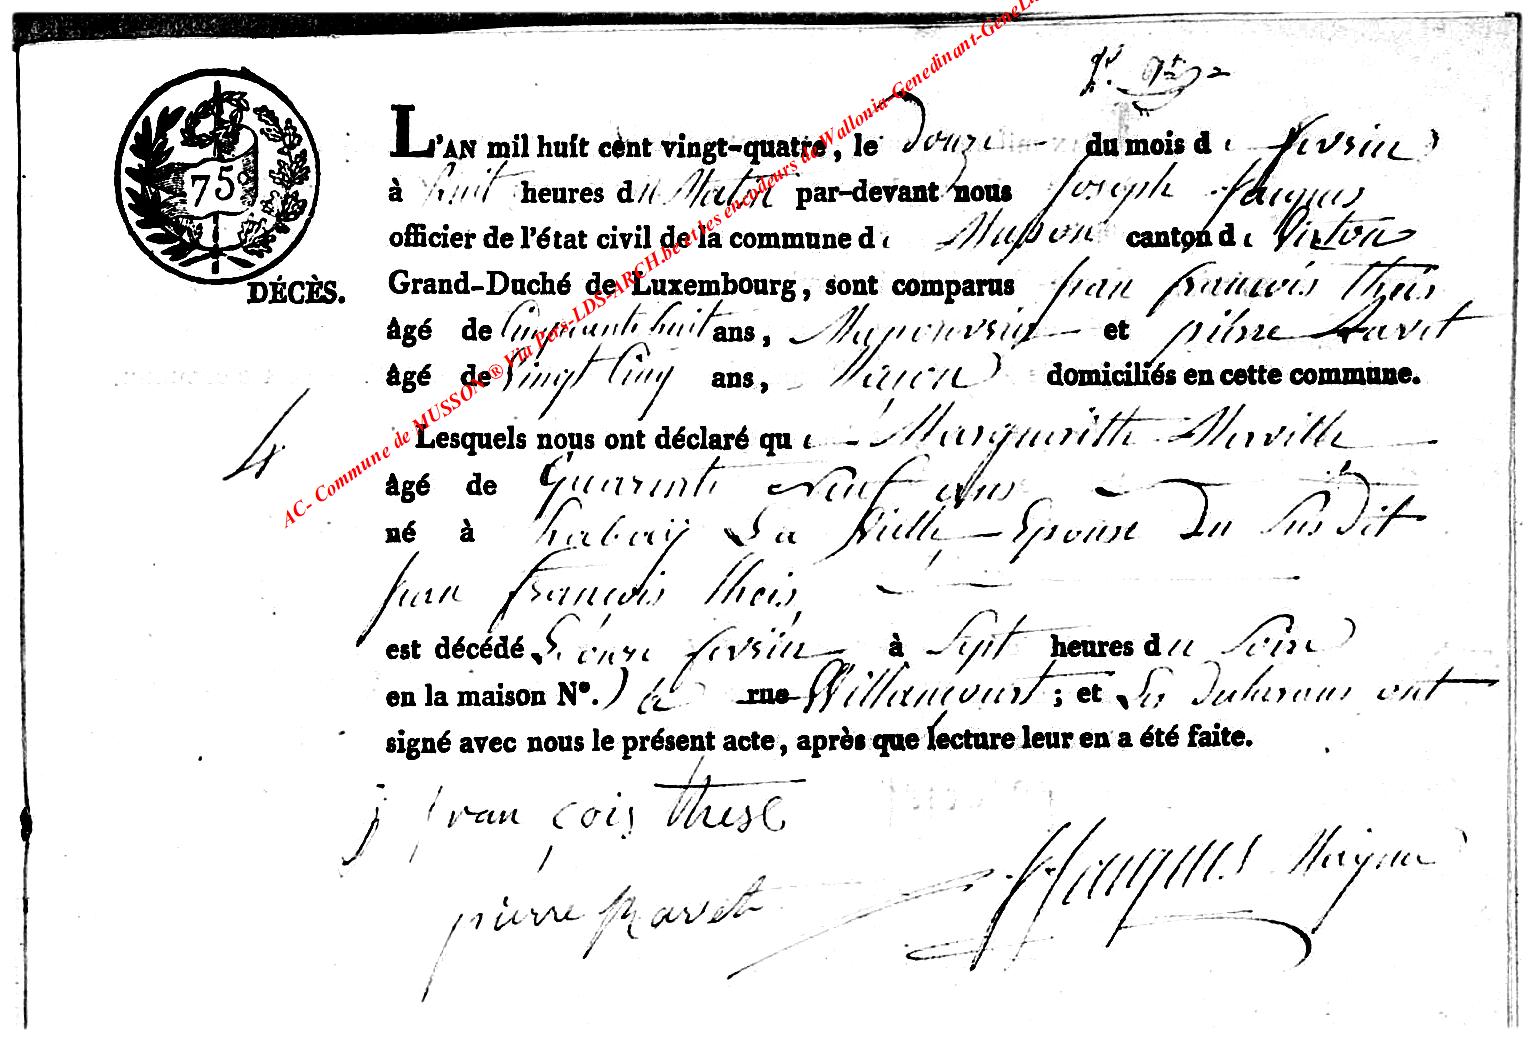 75
L'AN mil huit cent vingt-quatre, le Douze du mois de fevrier
à huit heures du Matin par-devant nous Joseph Jaques
officier de l'état civil de la commune de Musson canton de Virton
Grand-Duché de Luxembourg, sont comparus jean françois theis
âgé de Cinquante huit ans, et pierre Ravet
âgé de Vingt Cinq ans, Maçon domiciliés en cette commune.
4
Lesquels nous ont déclaré que Marguerithe Merville
âgé de Quarente Neuf ans
né à habaÿ La Vielle Epouse Du Susdit
jean françois theis
est décédé L'onze fevrier à Sept heures du Soire
en la maison N°. de rue Willancourt ; et Les Declarans ont
signé avec nous le présent acte, après que lecture leur en a été faite.
DÉCÈS.
j fran çois these
pierre Ravet
JJaques
AC- Commune de MUSSON ® Via Pers-LDS-ARCH.be et les encodeurs de Wallonia-Genedinant-GeneLu